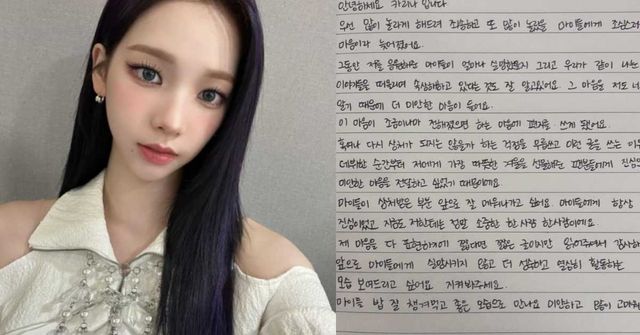 안녕하세요 카리나 입니다
우선 많이 놀라게 해드려 죄송하고 또 많이 놀랐을 마이들에게 조심스러운
마음이라 늦어졌어요.
그동안 저를 응원해준 마이들이 얼마나 실망했을지 그리고 우리가 같이 나눈
이야기들을 떠올리며 속상해하고 있다는 것도 잘 알고있어요. 그 마음을 저도 너
알기 때문에 더 미안한 마음이 들어요.
이 마음이 조금이나마 전해졌으면 하는 마음에 편지를 쓰게 됐어요.
혹여나 다시 상처가 되지는 않을까 하는 걱정을 무릅쓰고 이런 글을 쓰는 이유
데뷔한 순간부터 저에게 가장 따뜻한 겨울을 선물해준 팬분들에게 진심으
미안한 마음을 전달하고 싶었기 때문이에요.
마이들이 상처받은 부분 앞으로 잘 메워나가고 싶어요. 마이들에게 항상
진심이었고 지금도 저한테는 정말 소중한 한 사람 한사람이에요.
제 마음을 다 표현하기에 짧다면 짧은 글이지만 읽어주셔서 감사하
앞으로 마이들에게 실망시키지 않고 더 성숙하고 열심히 활동하는
모습 보여드리고 싶어요. 지켜봐주세요.
마이들 밥 잘 챙겨먹고 좋은 모습으로 만나요 미안하고 많이 고마워